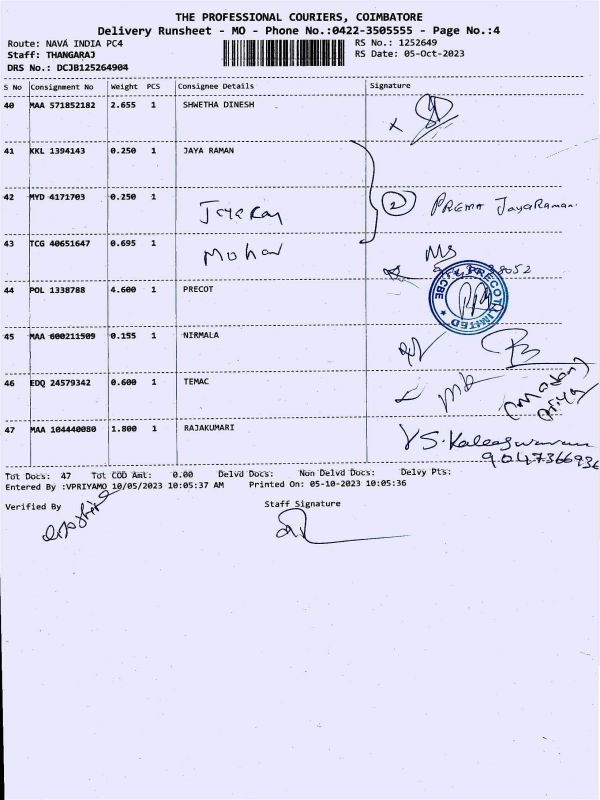 THE PROFESSIONAL COURIERS, COIMBATORE
Delivery Runsheet - MO - Phone No.:0422-3505555 - Page No.:4
Route: NAVA INDIA PC4 RS No.: 1252649
Staff: THANGARAJ RS Date: 05-Oct-2023
DRS No.: DCJB125264904
S No Consignment No Weight PCS Consignee Details Signature
40 MAA 571852182 2.655 1 SHWETHA DINESH
41 KKL 1394143 0.250 1 JAYA RAMAN
42 MYD 4171703 0.250 1 2 PREMA JayaRaman.
43 TCG 40651647 0.695 1 Mohan
44 POL 1338788 4.600 1 PRECOT PRECOT LIMITED CBE
45 MAA 600211509 0.155 1 NIRMALA
46 EDQ 24579342 0.600 1 TEMAC
47 MAA 104440080 1.800 1 RAJAKUMARI
9047366936
Tot Docs: 47 Tot COD Amt: 0.00 Delvd Docs: Non Delvd Docs: Delvy Pts:
Entered By :VPRIYAMO 10/05/2023 10:05:37 AM Printed On: 05-10-2023 10:05:36
Verified By Staff Signature